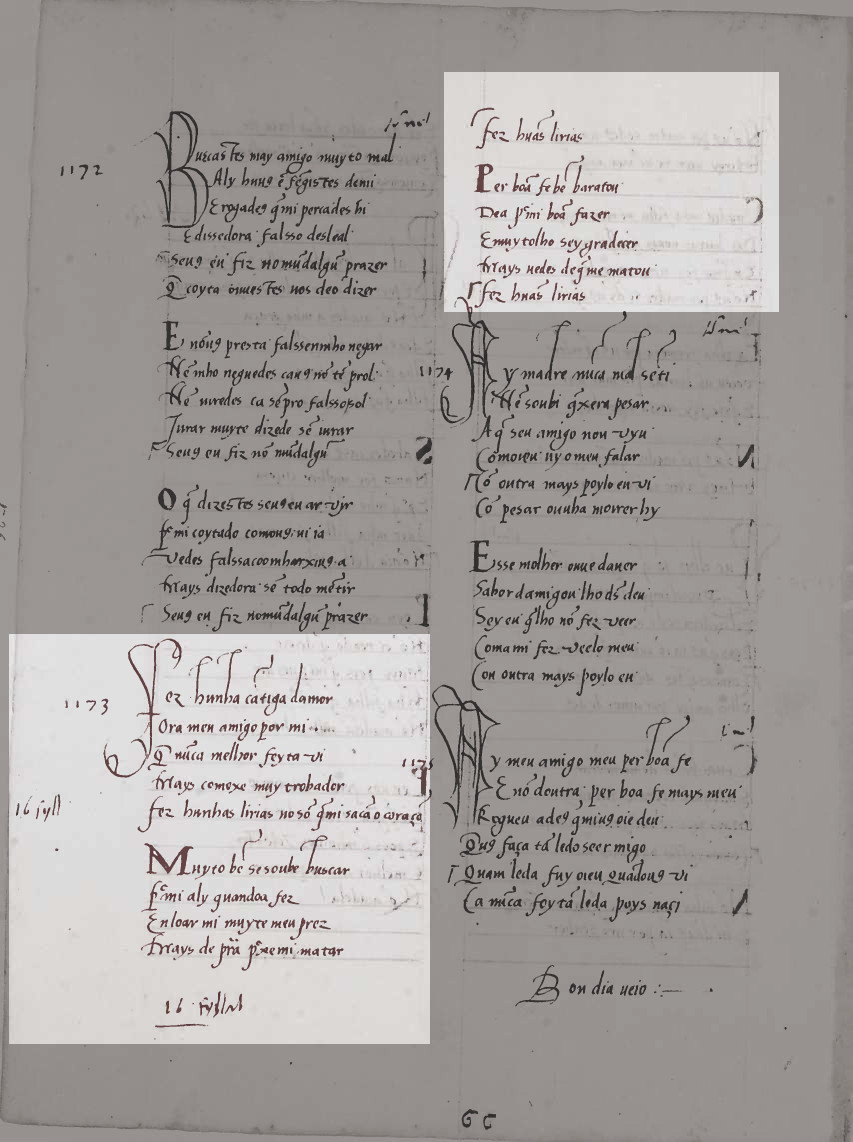 1172
Buscastes may amigo muyto mal
Aly huu9 ẽ fẽgistes demi
E rogade9 q̃ mi percades hi
E dissedora falsso desleal
Seu9 eu fiz nomũdalgũ prazer
Q̃ coyta
E nõu9 presta falssenmho negar
Nẽ mho neguedes cau9 nõ tẽ prol
Nẽ uiredes ca sẽpro falssossol
Jurar muyte dizede sẽ iurar
Seu9 eu fiz nõ mũdalgũ
O q̃ dizestes seu9 eu ar vyr
mi coytado comou9 ui ia
Vedes
Mays dizedora sẽ todo mẽtir
Seu9 eu fiz nomũdalgũ prazer
1173
Fez hunha cãtiga damor
Ora meu amigo por mi
Q̃ nũca melhor feyta vi
Mays comexe muy trobador
16 syll
Fez hunhas lirias no sõ q̃ mi sacã o coraçõ
Muyto bẽ se soube buscar
mi aly quandoa fez
En loar mi muyte meu prez
Mays de prã xemi matar
16 syllal
Fez huas lirias
Per boã fe bẽ baratou
Dea p mi boã fazer
E muytolho sey gradecer
Mays uedes de q̃ me matou
Fez huas lirias
1174
Ay madre nũca mal sẽti
Nẽ soubi q̃ xera pesar
A q̃ seu amigo non vyu
Comoieu uy o meu falar
Cõ outra mays poylo eu vi
Cõ pesar ouuha morrer hy
Esse molher ouue dauer
Sabor damigou lho ds deu
Sey eu q̃ lho nõ fez veer
Coma mi fez veelo meu
Con outra mays poylo eu
1175
Ay meu amigo meu per boa fe
E nõ doutra per boa fe mays meu
Rogueu ade9 q̃ miu9 oie deu
Qu9 faça tã ledo seer migo
Quam leda fuy oieu quãdou9 vi
Ca nũca fey tã leda poys naçi
Bon dia ueio
66